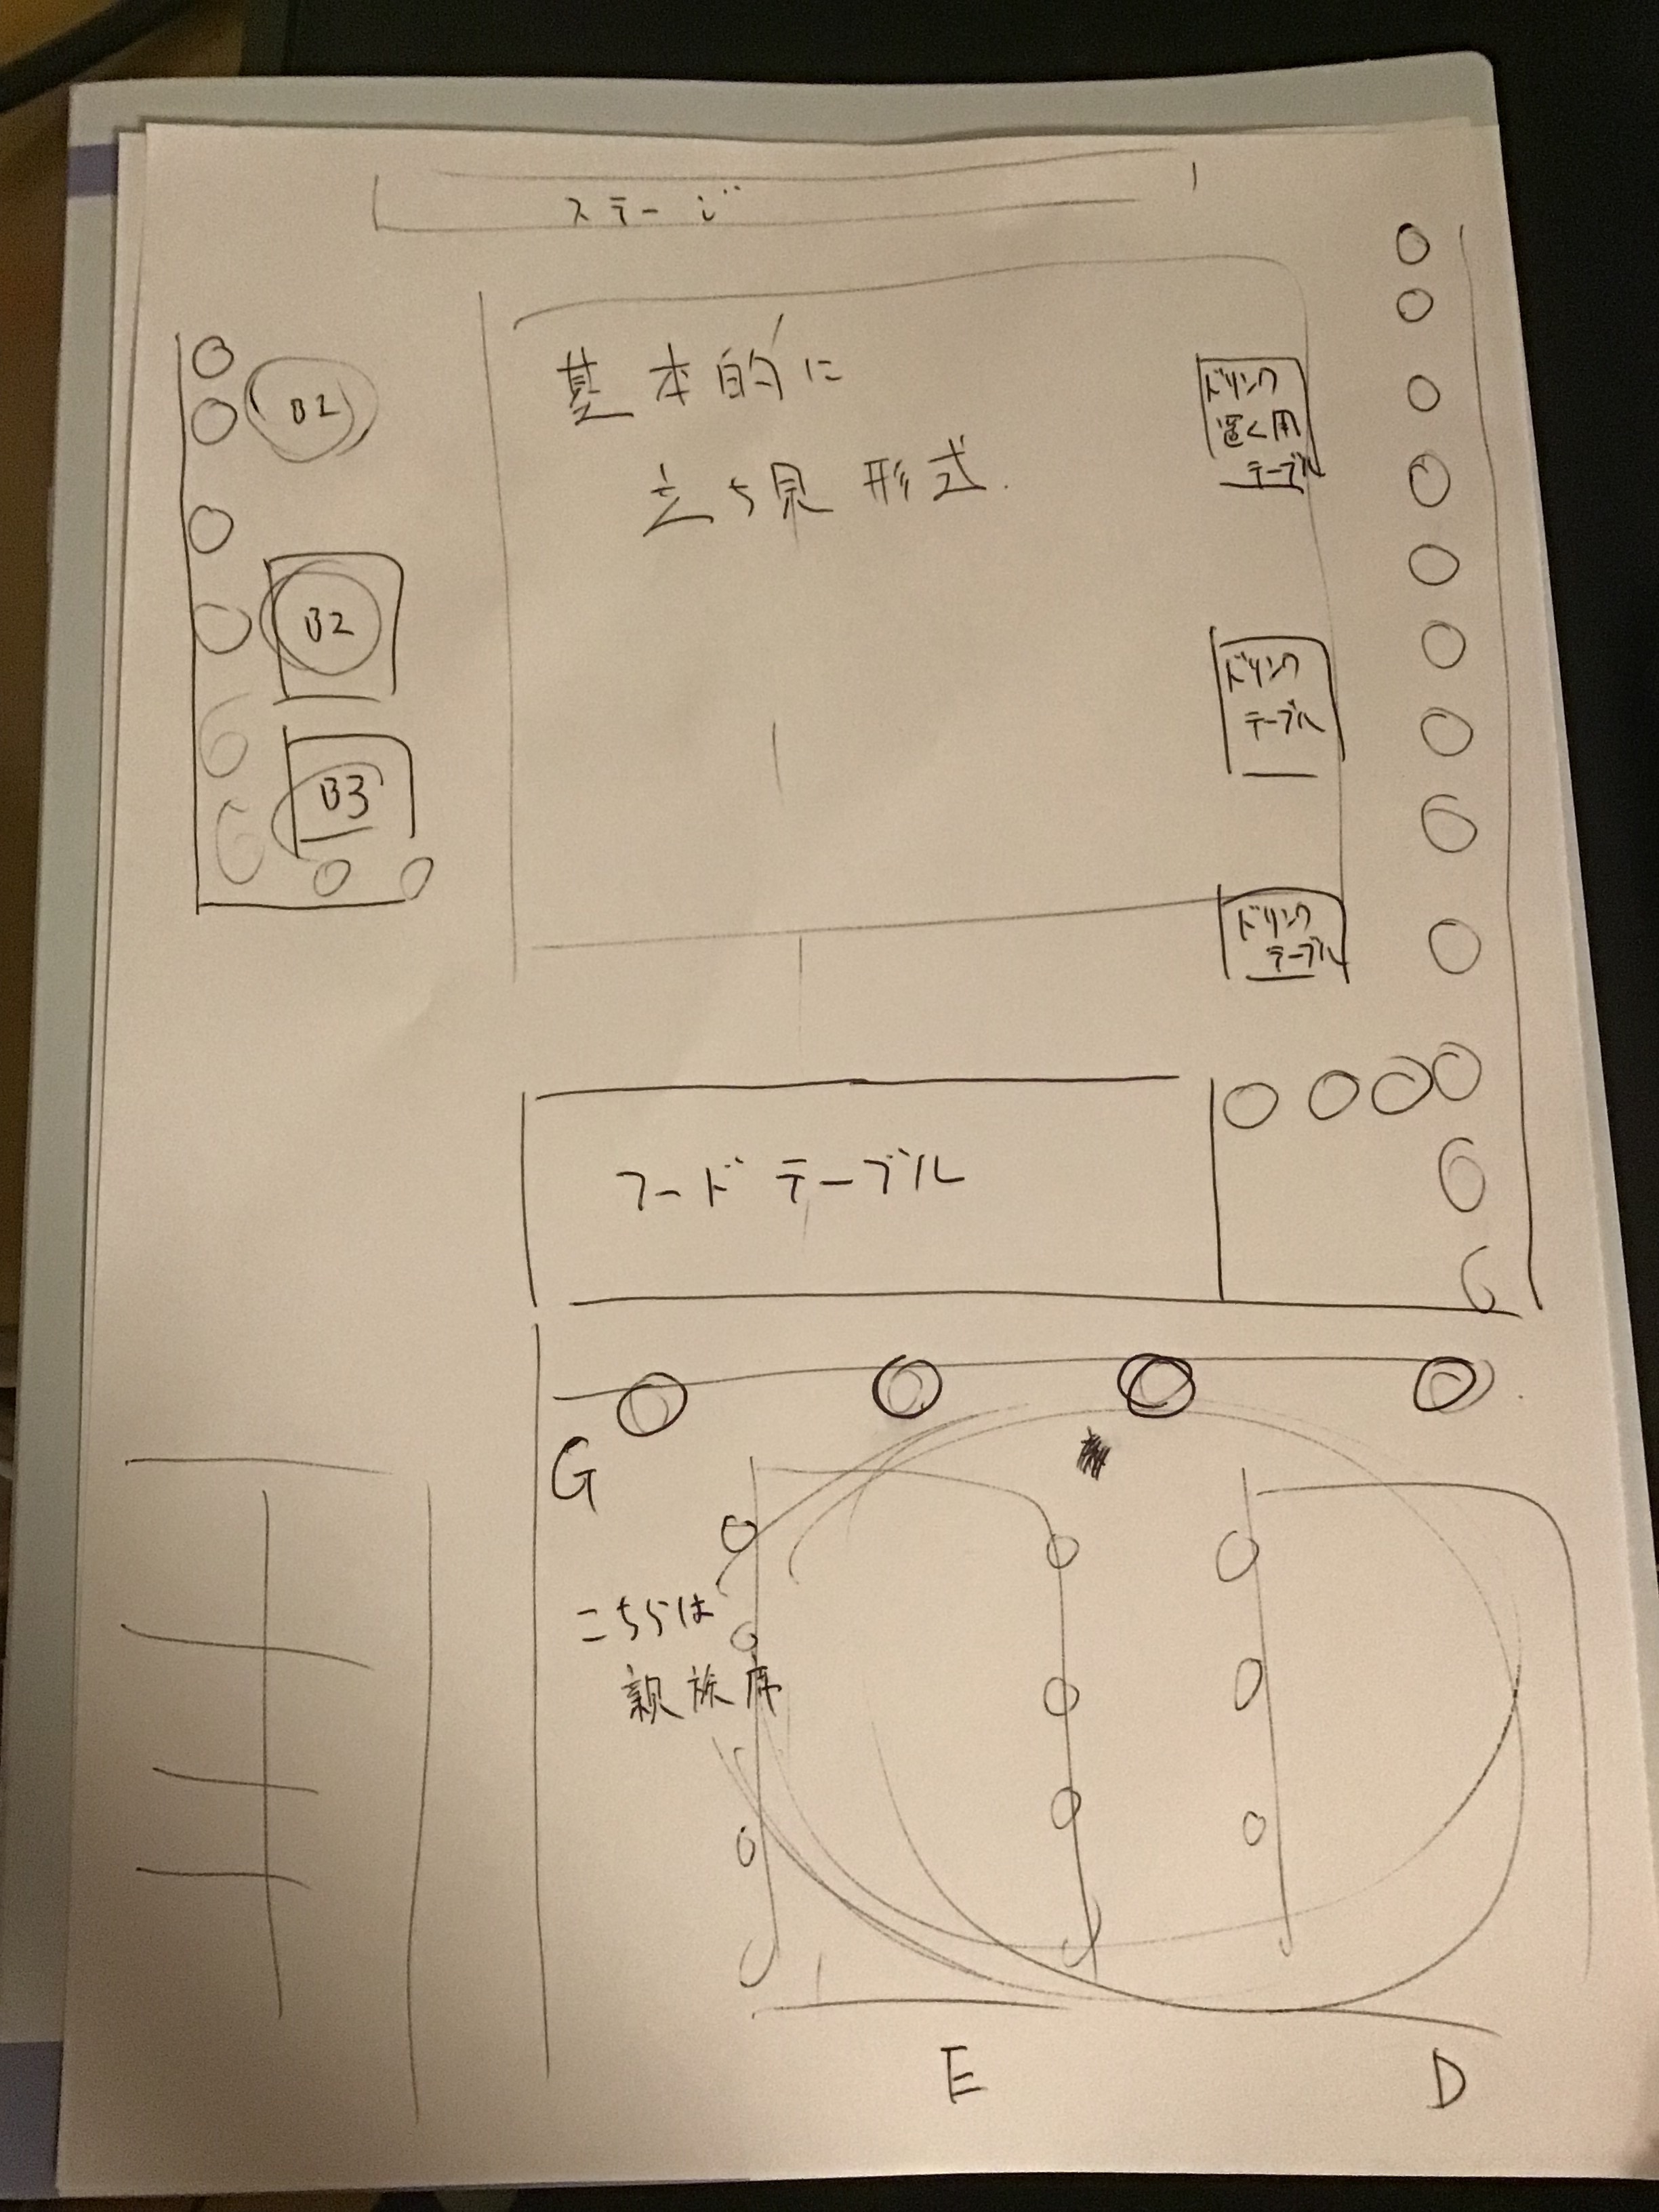 ステージ
基本的に
立ち見形式.
ドリンク
置く用
テーブル
B2
B2
B3
ドリンク
テーブル
ドリンク
テーブル
フードテーブル
G
こちらは
親族席
E
D